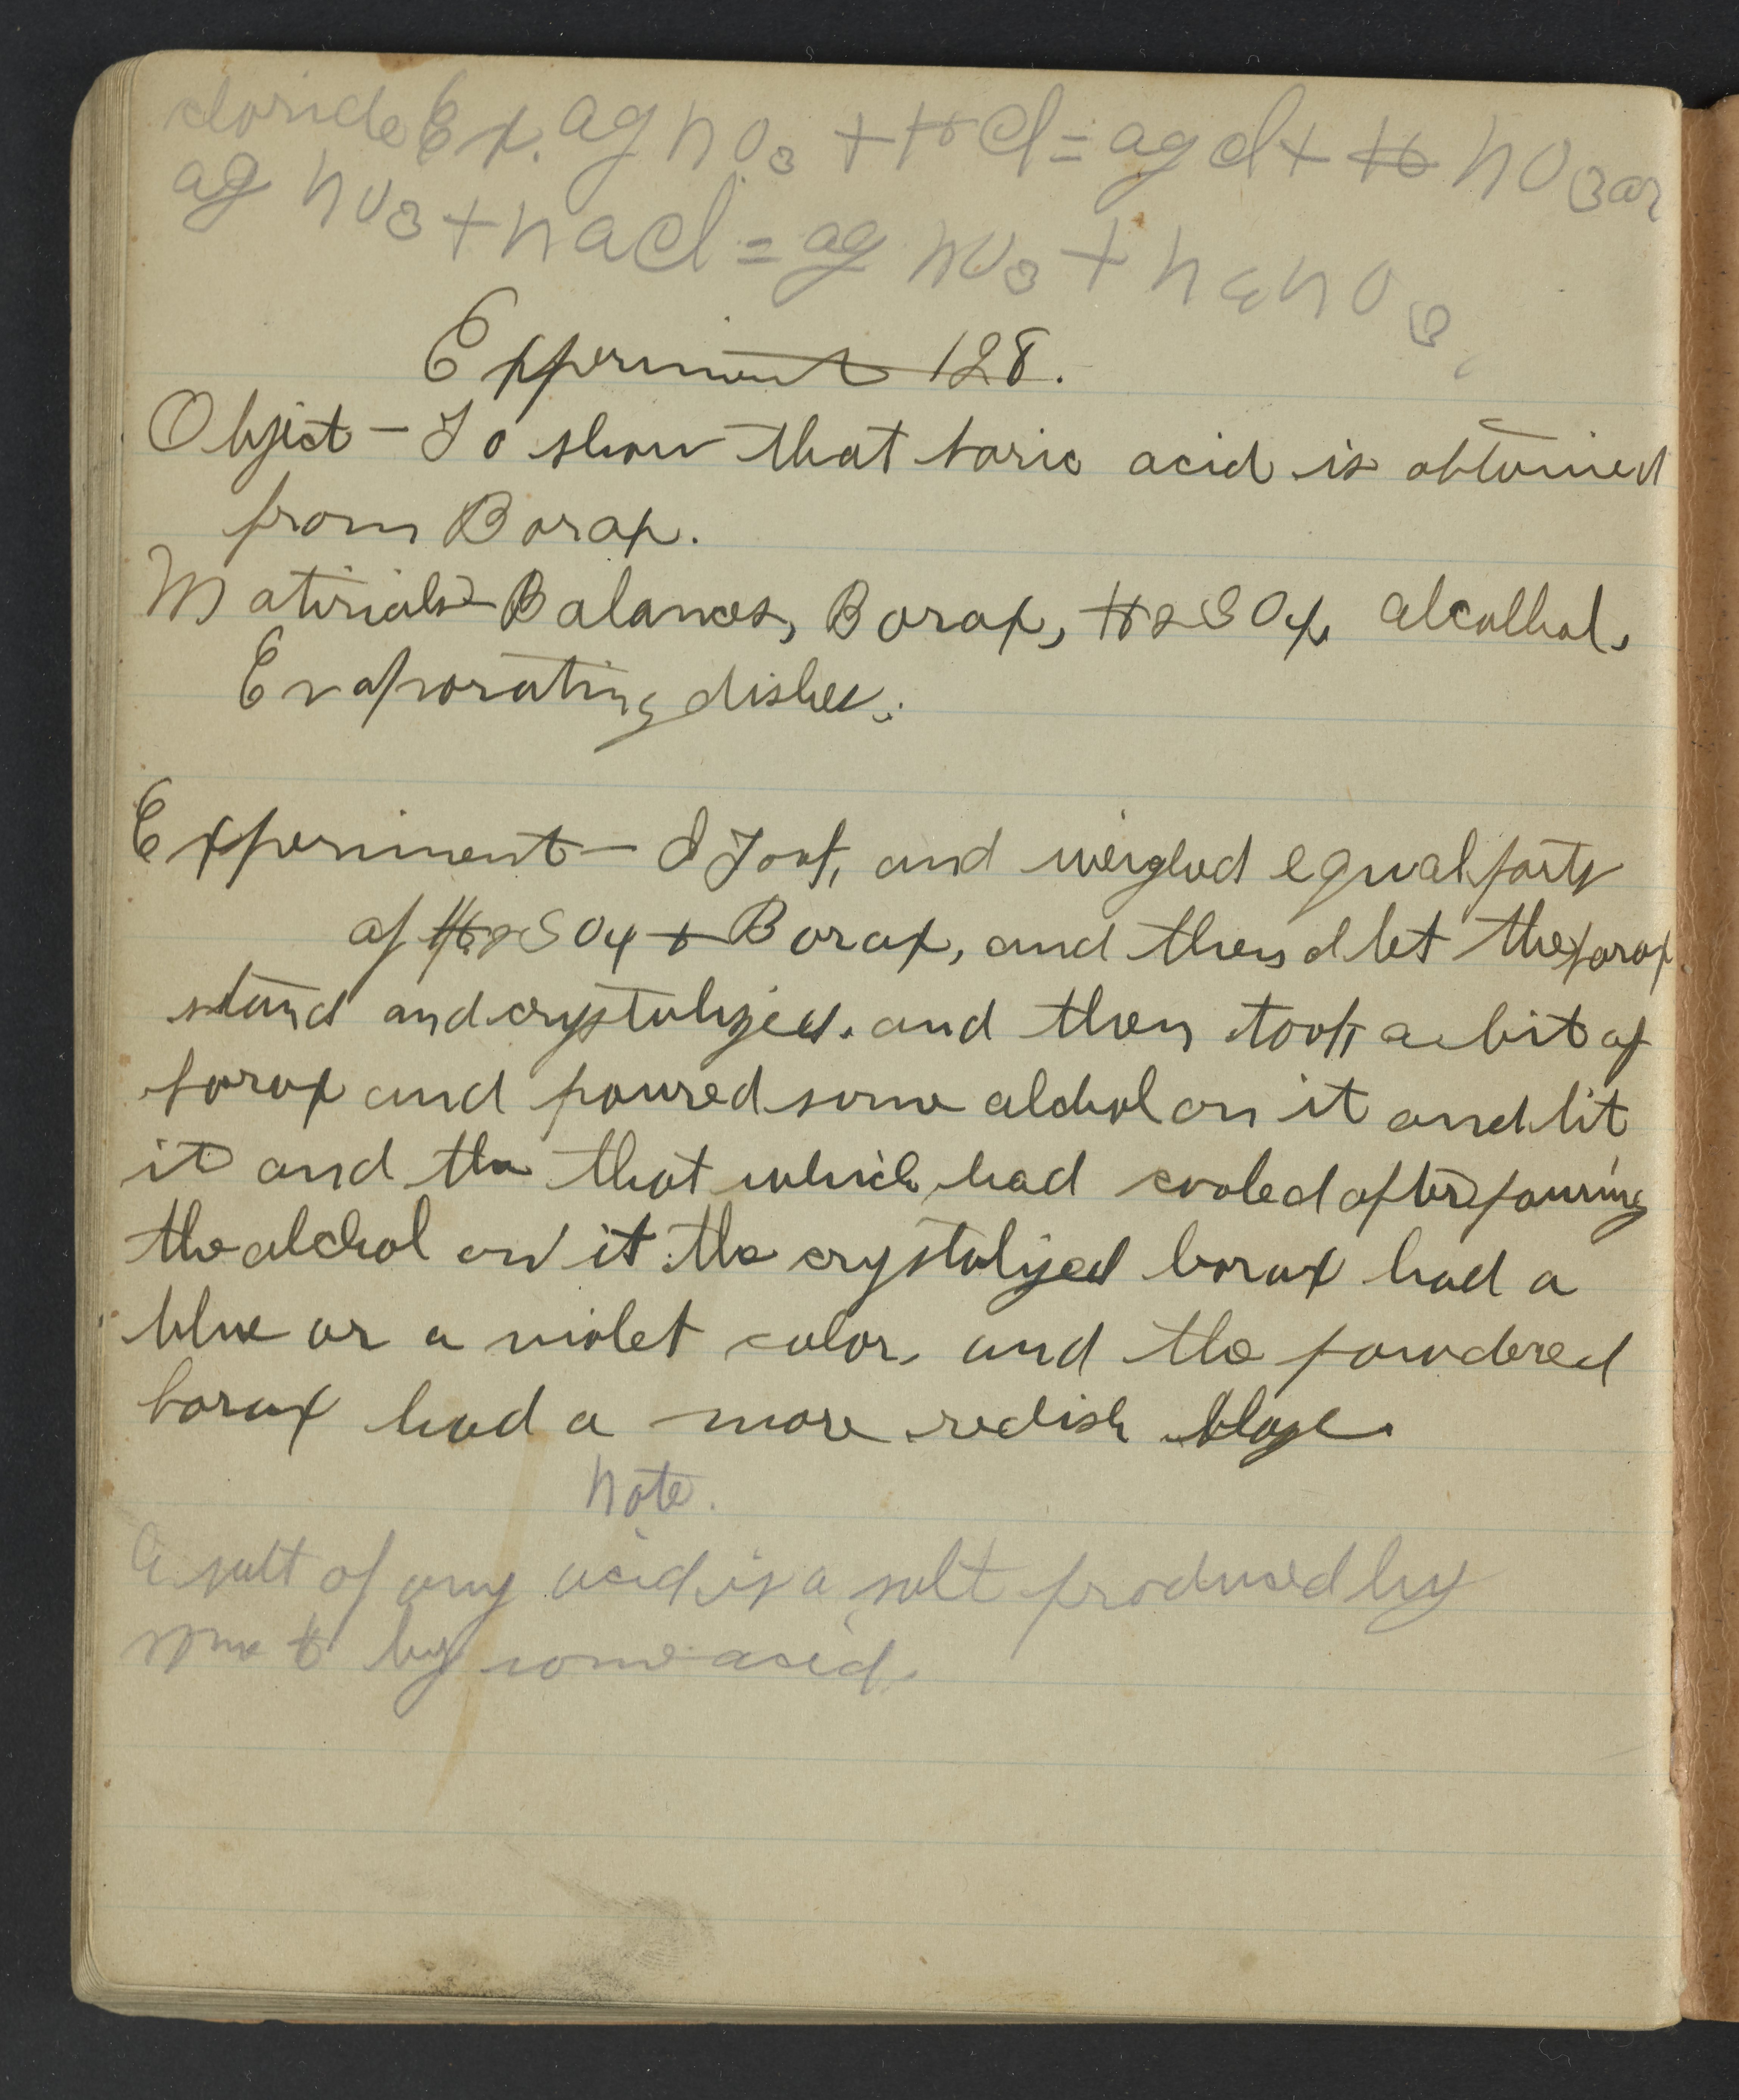 cloride Ex. Ag NO3 + HCl = Ag Cl + H NO3 or
Ag NO3 + NaCl = Ag NO3 + NaNO3.
Experiment 128.
Object - To show that boric acid is obtained
from Borax.
Materials - Balances, Borax, H2SO4 alcolhol,
Evaporating dishes.
Experiment - I Took, and weighed equal parts
of H2SO4 + Borax, and then I let the borax
stand and crystalized. and then took a bit of
borax and poured some alchol on it and lit
it and the that which had cooled after pouring
the alchol on it the crystalized borax had a
blue or a violet color, and the powdered
borax had a more redish blaze.
Note.
A salt of any acid is a salt produced by
some by some acid.